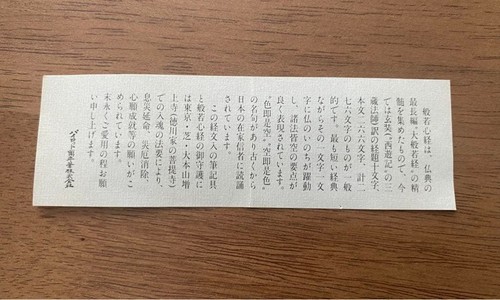 般若心経は、仏典の
最長編“大般若経”の精
髄を集めたもので、今
では玄奘（西遊記）の三
蔵法師）訳の経題十文字、
本文二六六文字、計二
七六文字のものが一般
的です。最も短い経典
ながらその一文字一文
字に仏のいのちが躍動
し、諸法皆空の要点が
良く表現されています。
“色即是空”“空即是色”
の名句があり古人から
日本の在家信者に読誦
されています。
この経文入の筆記具
と般若心経の御守護に
は東京・芝・大本山増
上寺（徳川家の菩提寺）
での入魂の法要により、
息災延命、災厄消除、
心願成就等の願いがこ
められています。
末永くご愛用の程お願
い申し上げます。
パイロット萬年筆株式会社